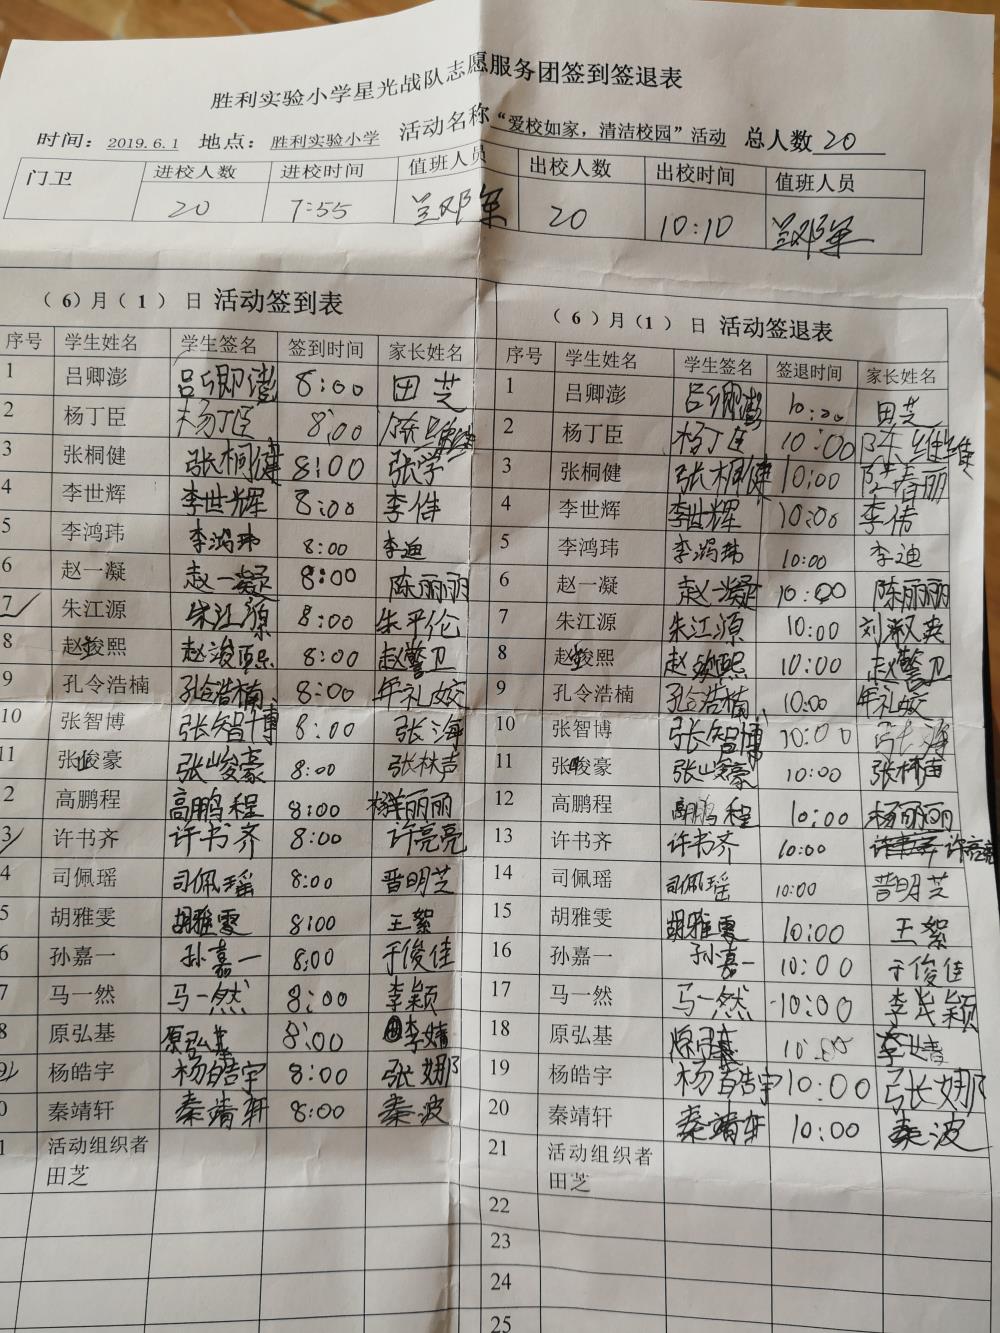 胜利实验小学星光战队志愿服务团签到签退表
时间：2019.6.1 地点：胜利实验小学 活动名称“爱校如家，清洁校园”活动 总人数 20
门卫 进校人数 进校时间 值班人员 出校人数 出校时间 值班人员
20 7:55 20 10:10
（6）月（1）日 活动签到表
序号 学生姓名 学生签名 签到时间 家长姓名
1 吕卿澎 吕卿澎 8:00 田芝
2 杨丁臣 杨丁臣 8:00 陈维维
3 张桐健 张桐健 8:00 张学
4 李世辉 李世辉 8:00 李倩
5 李鸿玮 李鸿玮 8:00 李迪
6 赵一凝 赵一凝 8:00 陈丽丽
7 朱江源 朱江源 8:00 朱平伦
8 赵竣熙 赵竣熙 8:00 赵警卫
9 孔令浩楠 孔令浩楠 8:00 年礼姣
10 张智博 张智博 8:00 张海
11 张峻豪 张峻豪 8:00 张林声
2 高鹏程 高鹏程 8:00 杨丽丽
3 许书齐 许书齐 8:00 许亮亮
4 司佩瑶 司佩瑶 8:00 昔明芝
5 胡雅雯 胡雅雯 8:00 王絮
6 孙嘉一 孙嘉一 8:00 于俊佳
7 马一然 马一然 8:00 李颖
8 原弘基 原弘基 8:00 李婧
9 杨皓宇 杨皓宇 8:00 张娜
0 秦靖轩 秦靖轩 8:00 秦波
1 活动组织者
田芝
（6）月（1）日 活动签退表
序号 学生姓名 学生签名 签退时间 家长姓名
1 吕卿澎 吕卿澎 10:00 田芝
2 杨丁臣 杨丁臣 10:00 陈维维
3 张桐健 张桐健 10:00 陈春丽
4 李世辉 李世辉 10:00 李倩
5 李鸿玮 李鸿玮 10:00 李迪
6 赵一凝 赵一凝 10:00 陈丽丽
7 朱江源 朱江源 10:00 刘淑爽
8 赵竣熙 赵竣熙 10:00 赵警卫
9 孔令浩楠 孔令浩楠 10:00 年礼姣
10 张智博 张智博 10:00 张海
11 张峻豪 张峻豪 10:00 张林声
12 高鹏程 高鹏程 10:00 杨丽丽
13 许书齐 许书齐 10:00 许亮亮
14 司佩瑶 司佩瑶 10:00 昔明芝
15 胡雅雯 胡雅雯 10:00 王絮
16 孙嘉一 孙嘉一 10:00 于俊佳
17 马一然 马一然 10:00 李颖
18 原弘基 原弘基 李婧
19 杨皓宇 杨皓宇 10:00 张娜
20 秦靖轩 秦靖轩 10:00 秦波
21 活动组织者
田芝
22
23
24
25